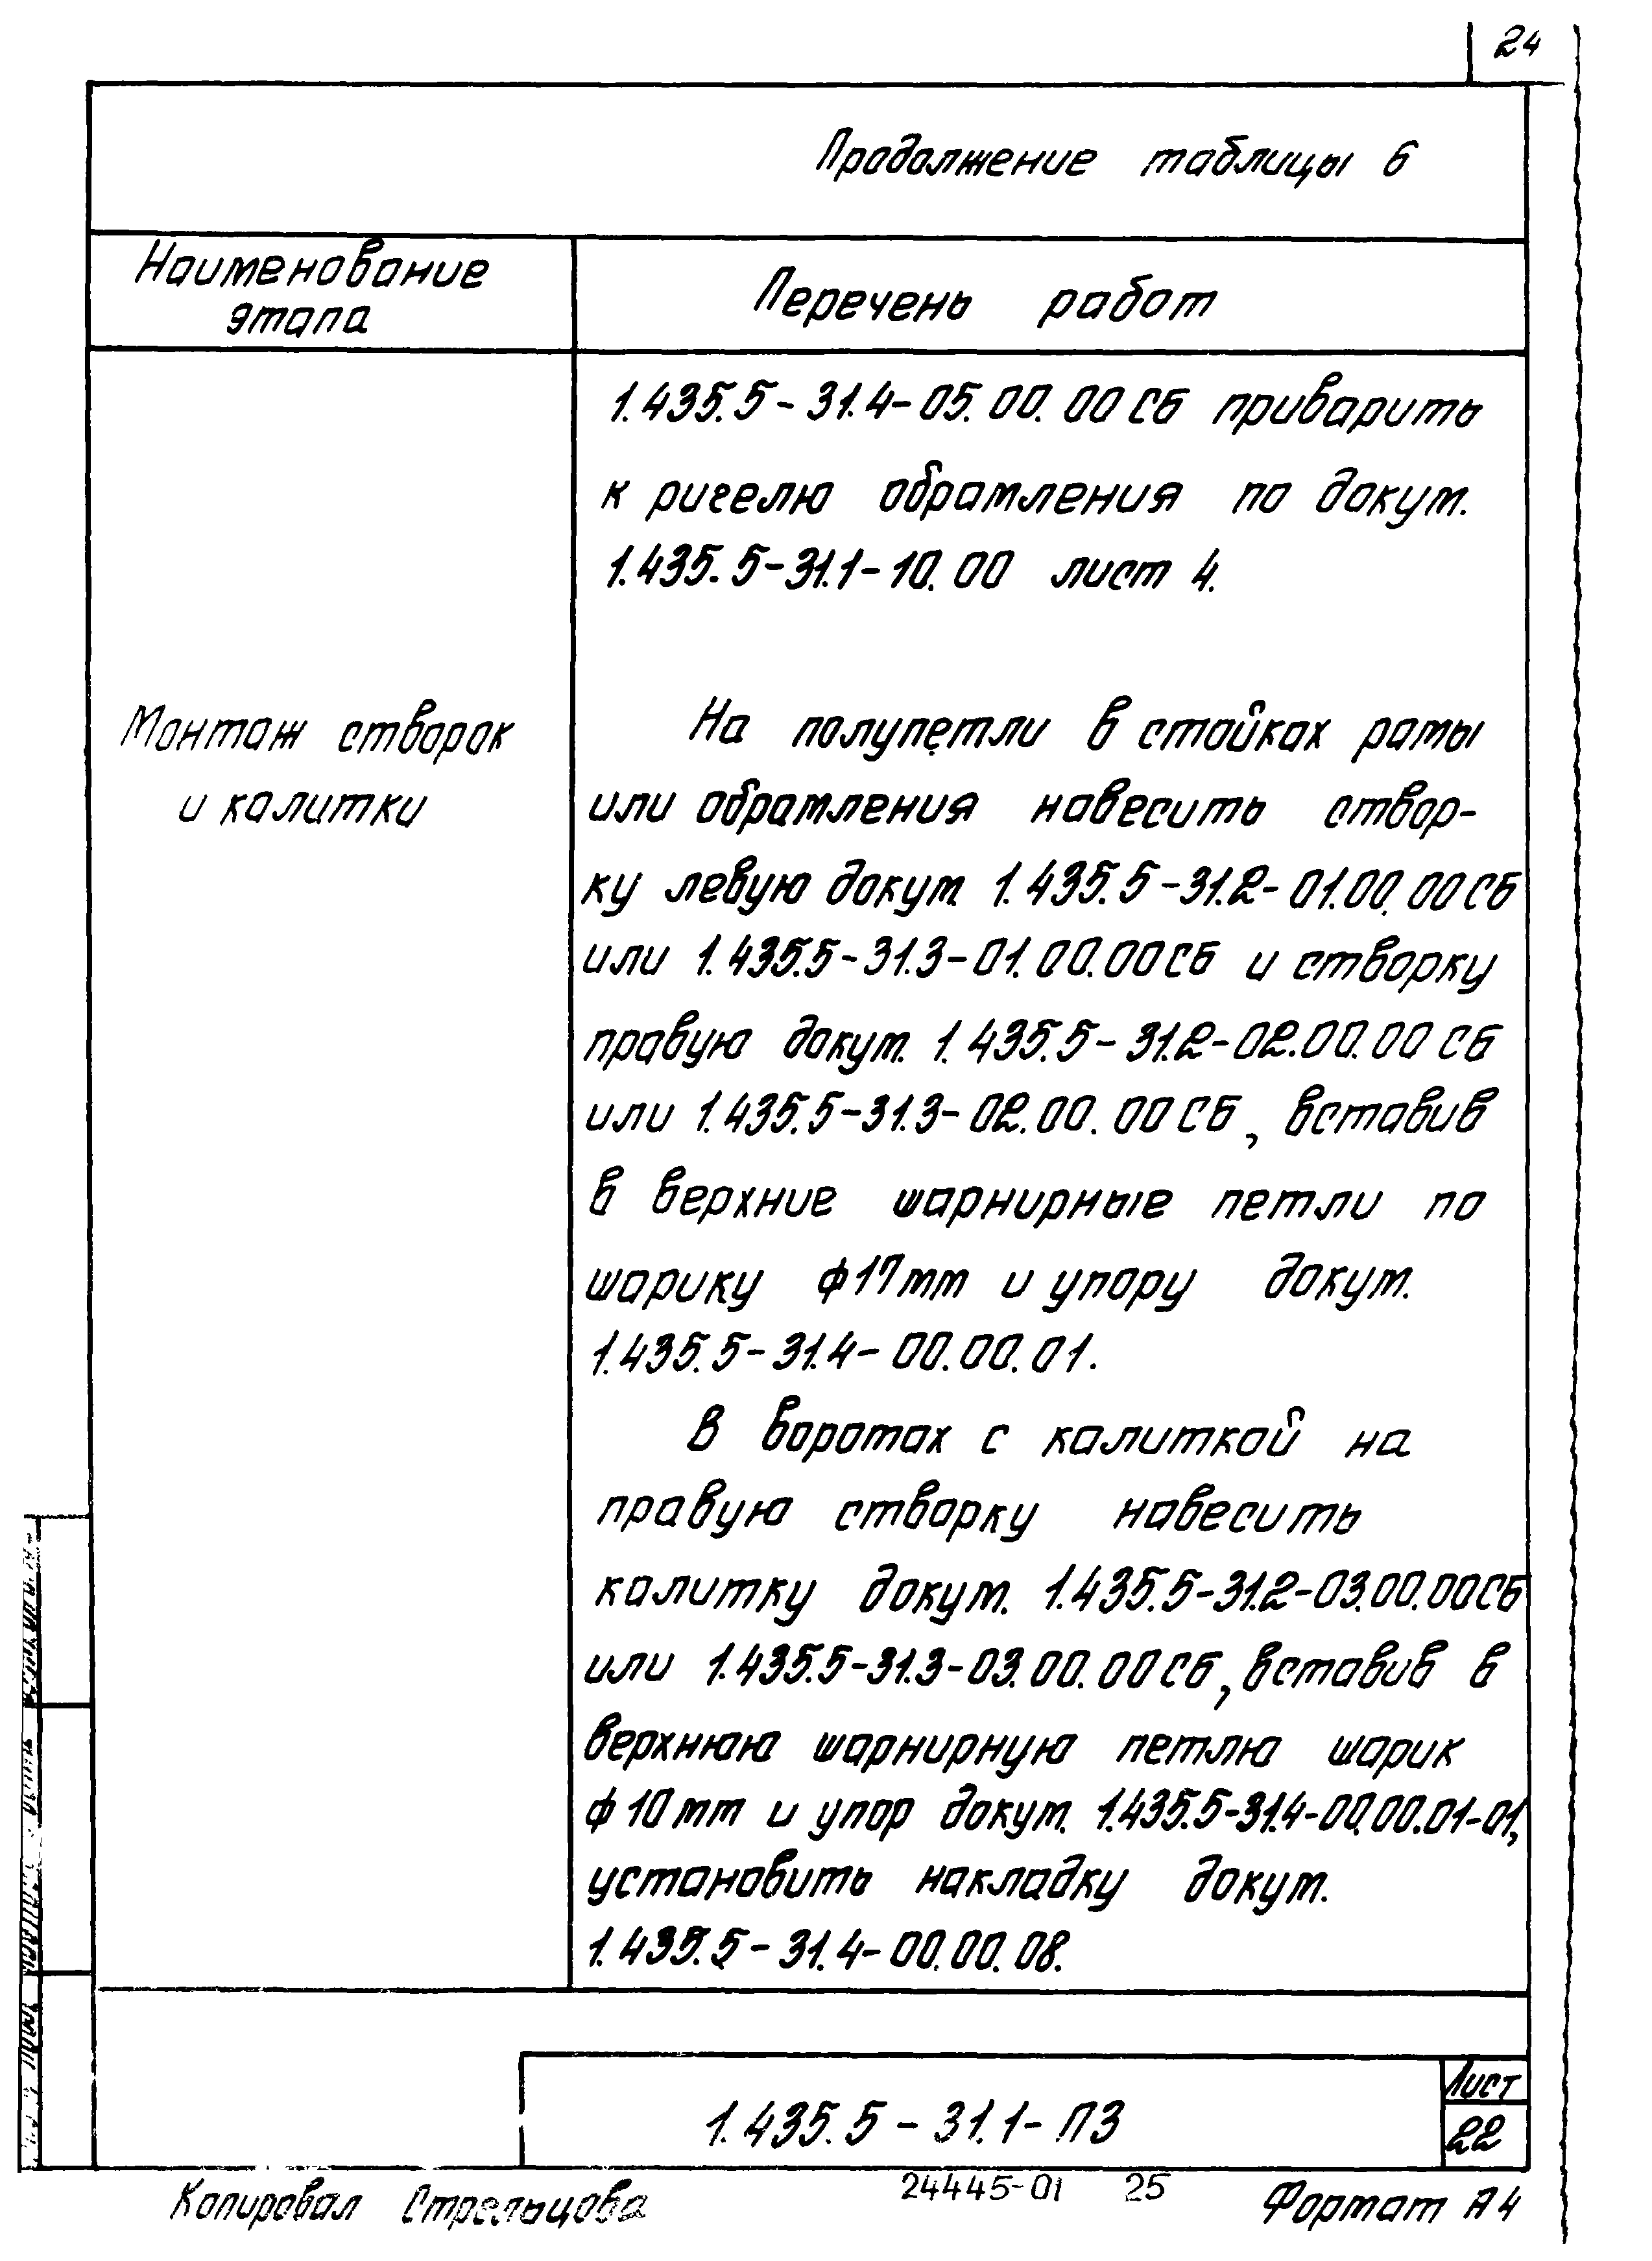 24
Продолжение таблицы 6
Наименование
этапа
Перечень работ
1.435.5-31.4-05.00.00СБ приварить
к ригелю обрамления по докум.
1.435.5-31.1-10.00 лист 4.
Монтаж створок
и калитки
На полупетли в стойках рамы
или обрамления навесить створ-
ку левую докум. 1.435.5-31.2-01.00.00СБ
или 1.435.5-31.3-01.00.00СБ и створку
правую докум. 1.435.5-31.2-02.00.00СБ
или 1.435.5-31.3-02.00.00СБ, вставив
в верхние шарнирные петли по
шарику ф17мм и упору докум.
1.435.5-31.4-00.00.01.
В воротах с калиткой на
правую створку навесить
калитку докум. 1.435.5-31.2-03.00.00СБ
или 1.435.5-31.3-03.00.00СБ, вставив в
верхнюю шарнирную петлю шарик
ф10мм и упор докум. 1.435.5-31.4-00.00.01-01,
установить накладку докум.
1.435.5-31.4-00.00.08.
1.435.5-31.1-ПЗ
Лист
22
Копировал Стрельцова
24445-01 25
Формат А4